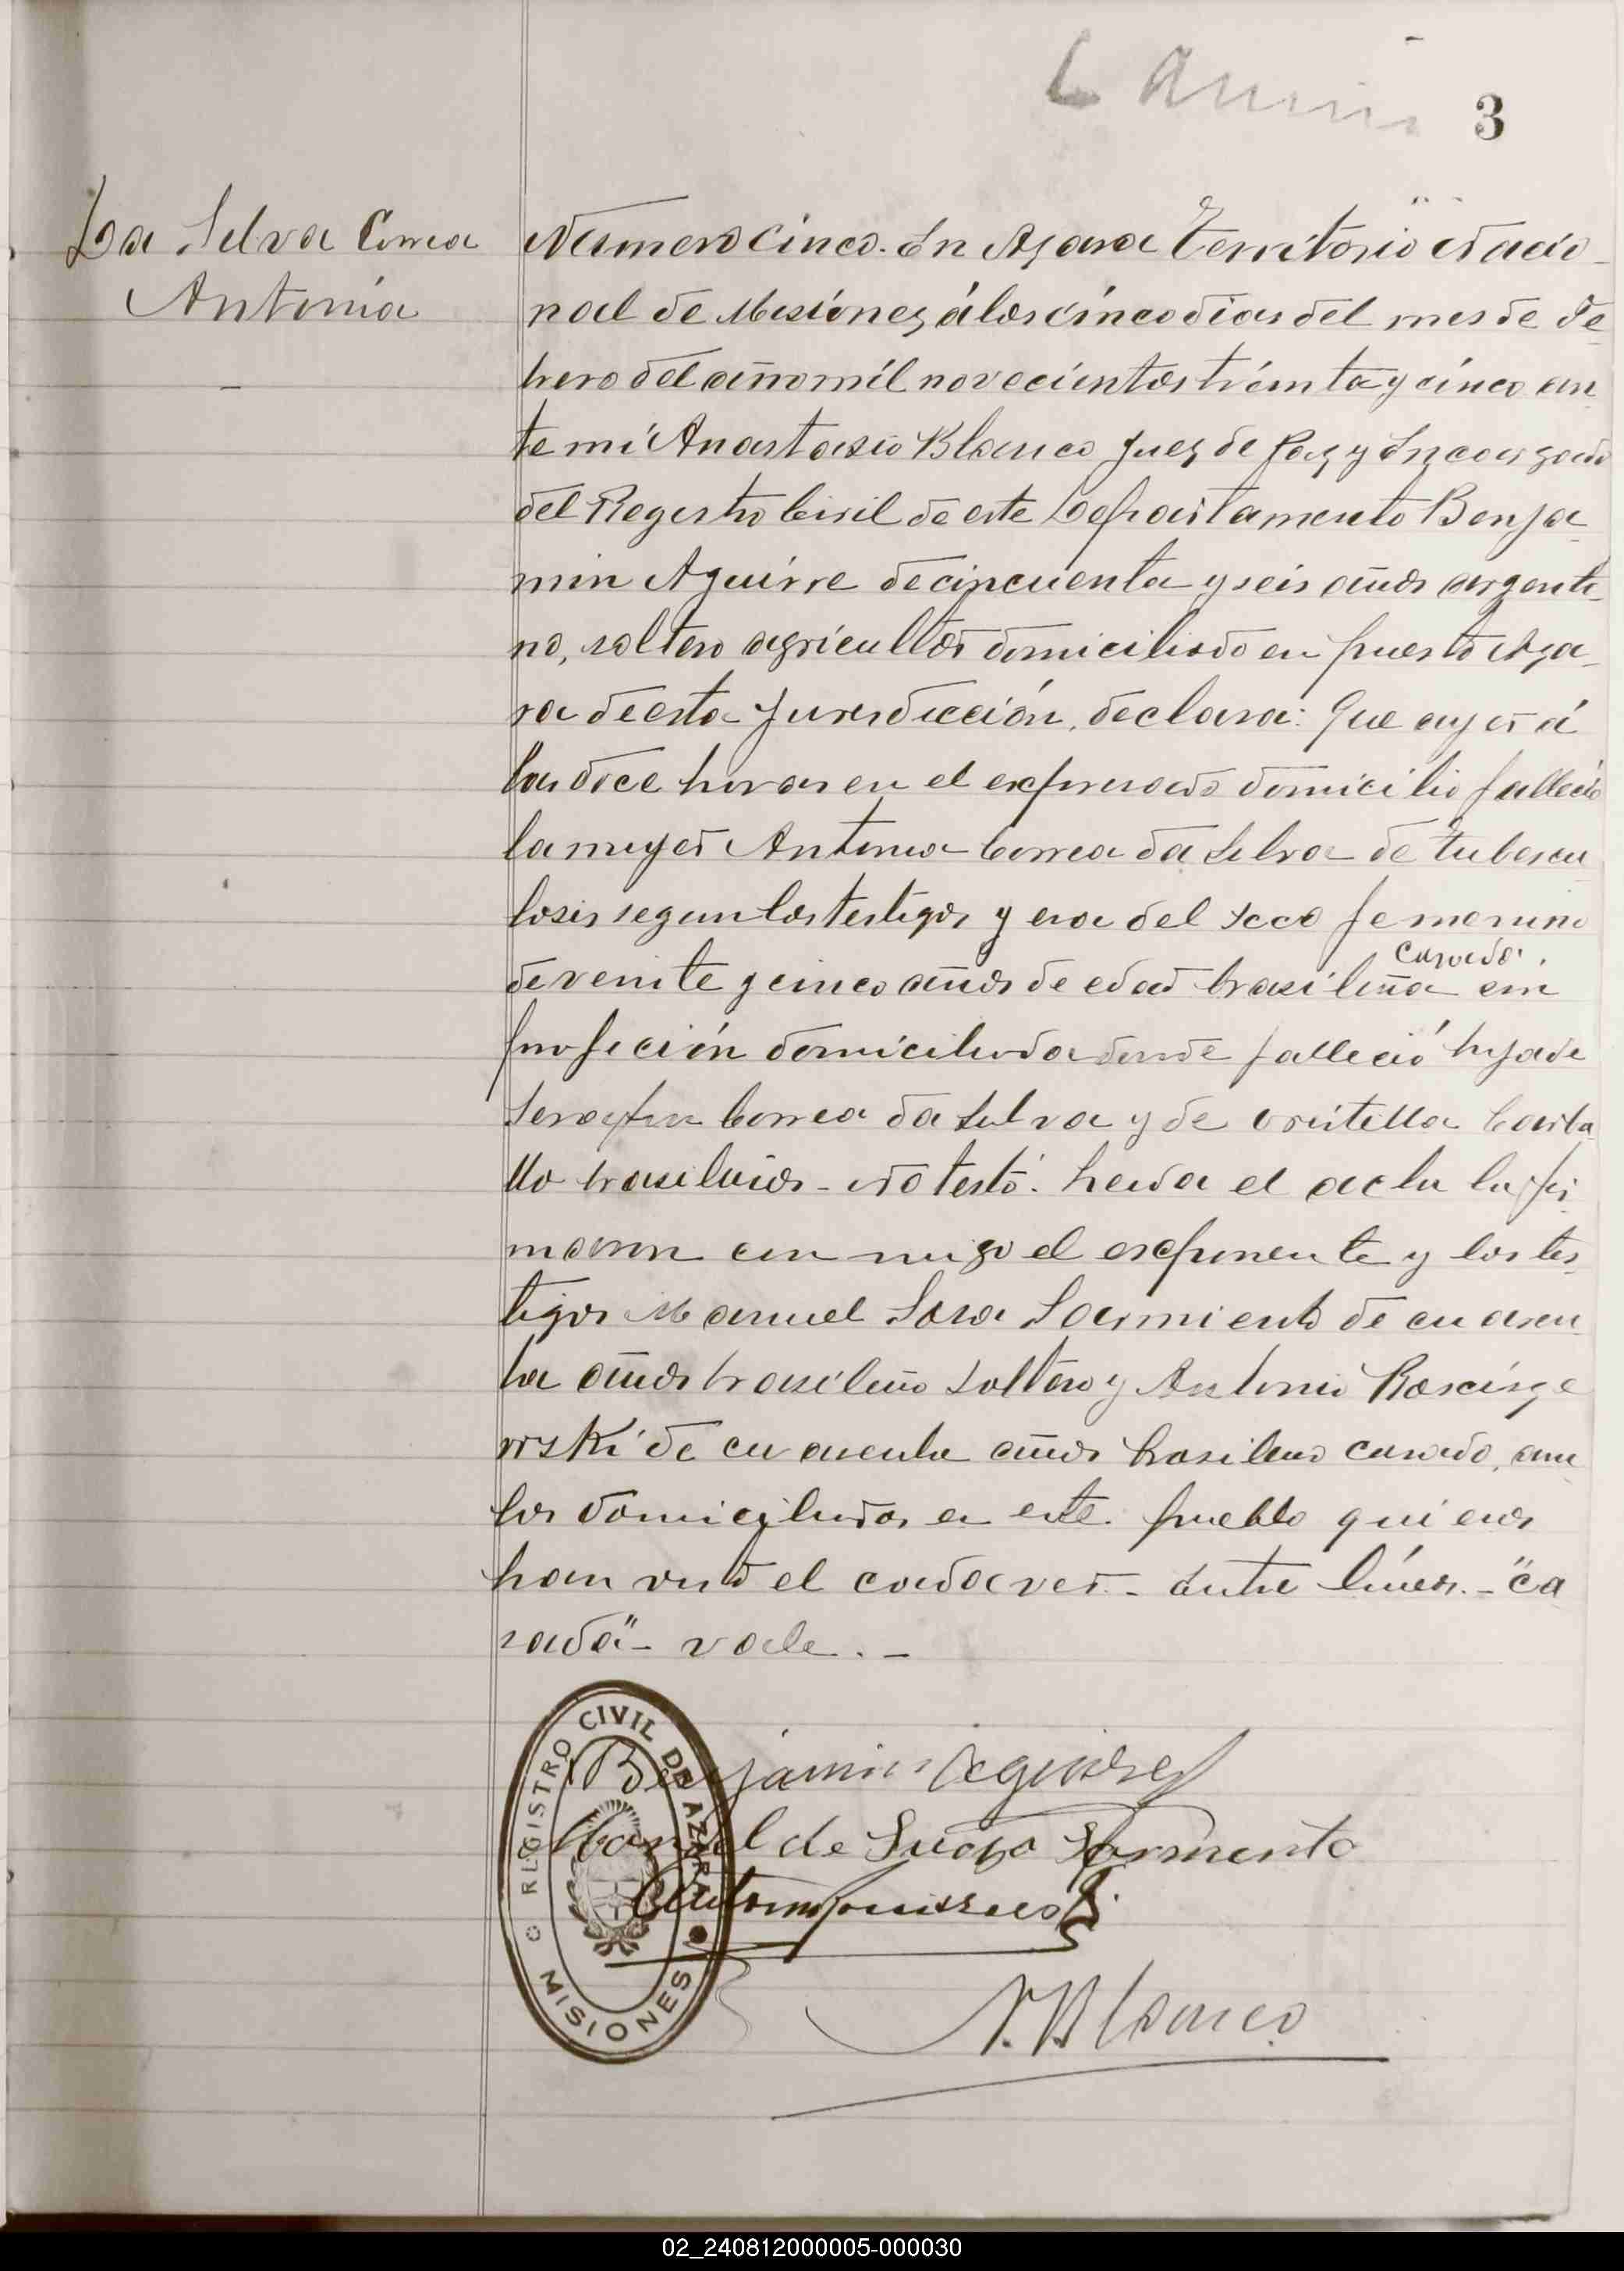 3
Da Silva Correa
Antonia
Numero cinco. En Azara Territorio Nacio-
nal de Misiones, á los cinco dias del mes de Fe-
brero del año mil novecientos treinta y cinco an
te mi Anastasio Blanco Juez de Paz y Encargado
del Registro Civil de este Departamento Benja-
min Aguirre de cincuenta y seis años argenti-
no, soltero agricultor domiciliado en puerto Aza-
ra de esta Jurisdicción, declara: Que ayer á
las doce horas en el expresado domicilio falleció
la mujer Antonia Correa da Silva de tubercu
losis segun los testigos y era del sexo femenino
casada.
de veinte y cinco años de edad brasileña sin
profeción domiciliada donde falleció hija de
Serafin Correa da Silva y de Carba
llo brasileños - No testó. Leida el acta la fir
maron con migo el exponente y los tes-
tigos Manuel Sosa Sarmiento de cuaren
ta años brasileño soltero y Antonio
de cuarenta años brasileno casado, am
bos domiciliados en este pueblo quienes
han visto el cadaver - Entre líneas. - "ca
sada" - vale. -
Benjamin Aguirre
Manuel de Sarmento
Antonio
A. Blanco
REGISTRO CIVIL DE AZARA
MISIONES
02_240812000005-000030